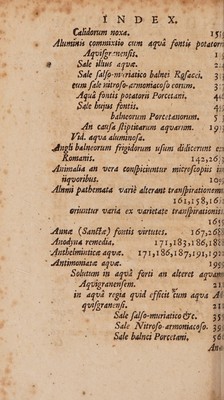 INDEX.
Calidorum noxa.
Aluminis commixtio cum aquâ fontis potatorii
Aquisgranensis.
Sale illius aquæ.
Sale falso-muriatico balnei Rosacei.
cum sale nitroso-armoniacoso eorum.
Aquâ fontis potatorii Porcetani.
Sale hujus fontis.
balneorum Porcetanorum.
An causa stipticitarum aquarum.
Vid. aqua aluminosa.
Angli balneorum frigidorum usum didicerunt ex
Romanis. 142,
Animalia an vera conspiciuntur mitroscopiis in
liquoribus.
Animi pathemata variè alterant transpirationem
161, 158,
oriuntur varia ex varietate transpirationis
Annæ (Sanctæ) fontis virtutes. 167,
Anodyna remedia. 171, 183, 186,
Anthelminticæ aquæ. 171, 186, 187, 191,
Antimoniatæ aquæ.
Solutum in aquâ forti an alteret aquam
Aquisgranensem.
in aquâ regia quid efficit cum aqua
quisgranensi.
Sale salso-muriatico &c.
Sale Nitroso-armoniacoso.
Sale balnei Porcetani.